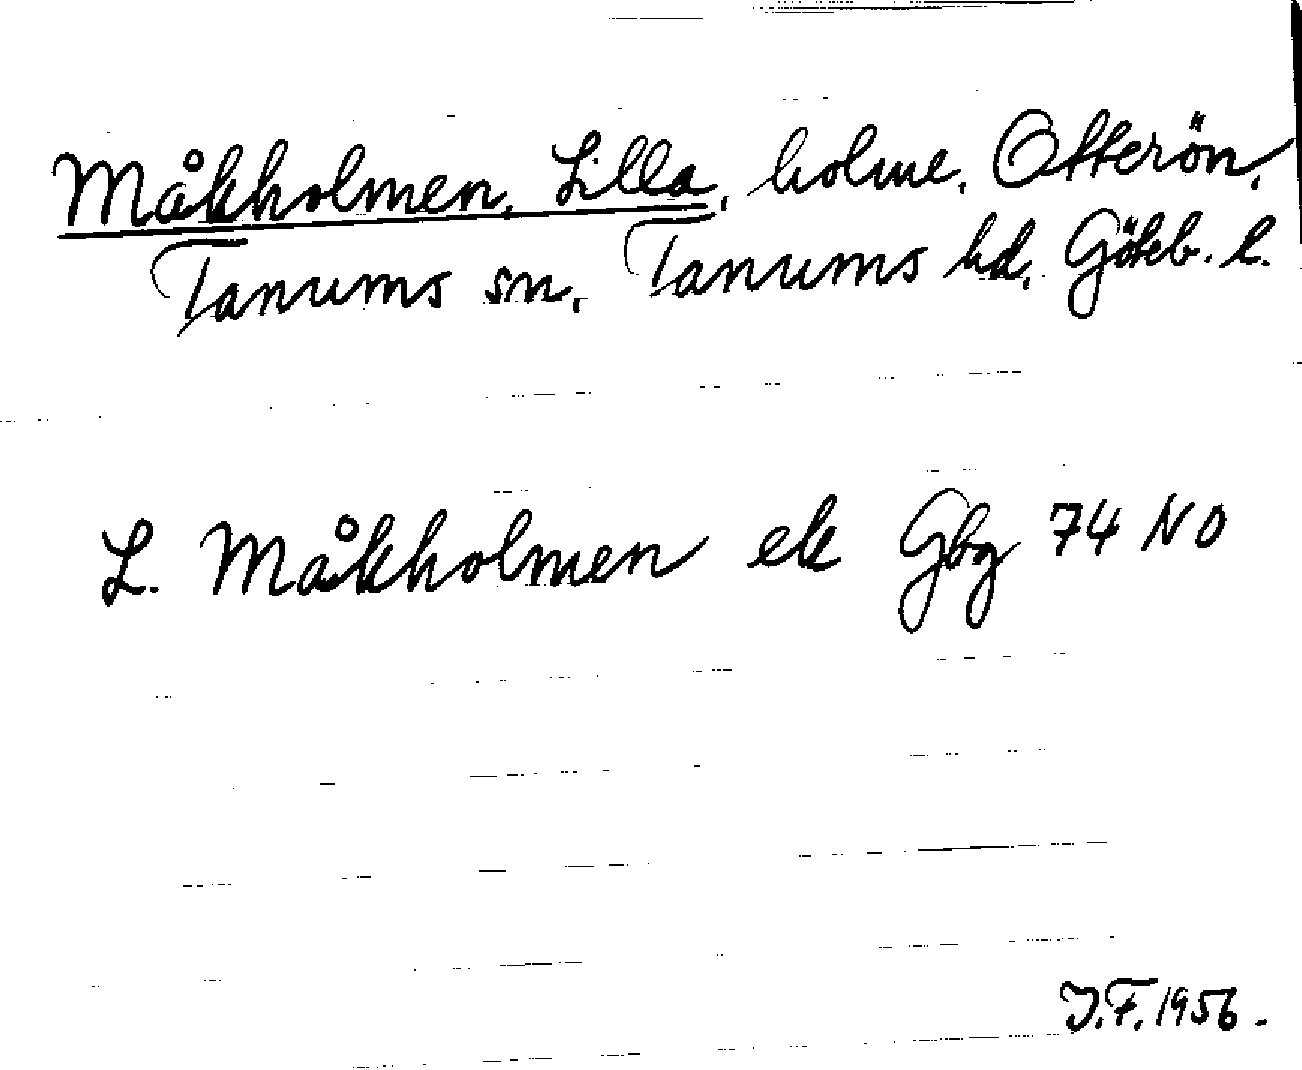 Måkholmen, Lilla, holme, Otterön,
Tanums sn, Tanums hd, Göteb. l.
L. Måkholmen ek Gbg 74 NO
J.F. 1956.